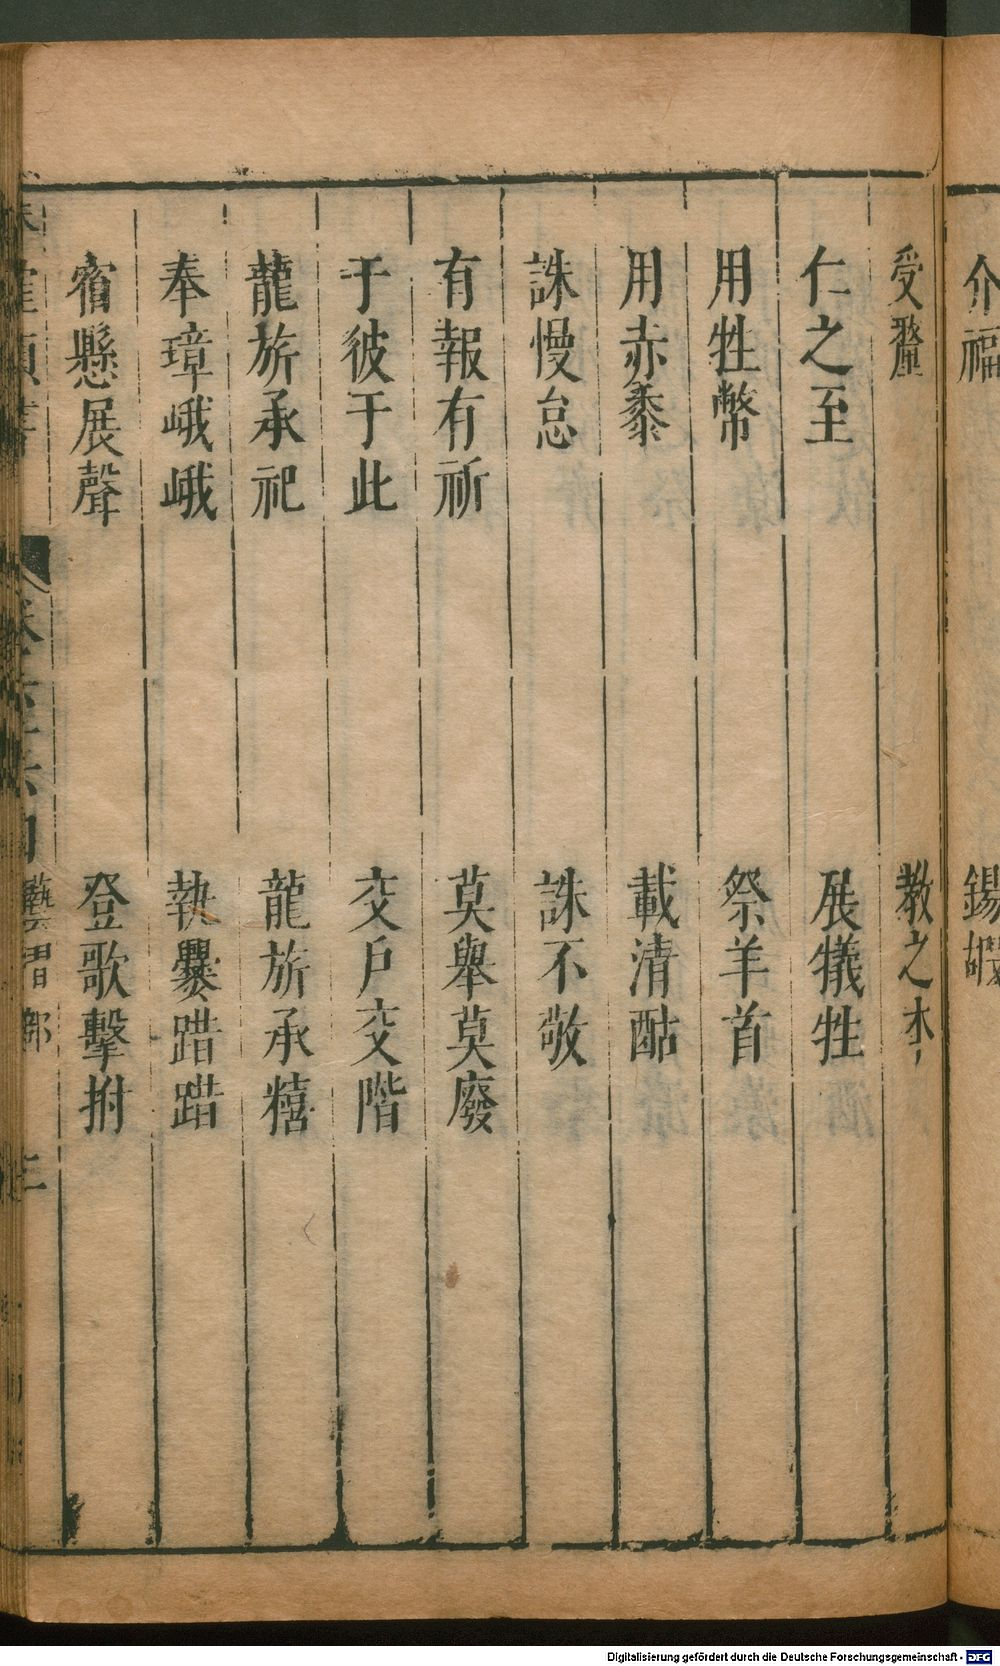 介福　錫
受釐　教之本
仁之至　展犧牲
用牲幣　祭羊首
用赤黍　載清酤
誅慢怠　誅不敬
有報有祈　莫舉莫廢
于彼于此　交戶交階
龍旂承祀　龍旂承糦
奉璋峨峨　執爨踖踖
宿懸展聲　登歌擊拊
Digitalisierung gefördert durch die Deutsche Forschungsgemeinschaft - DFG